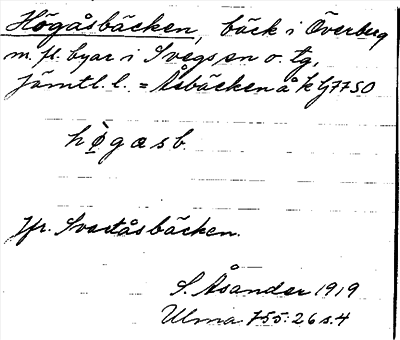 Högåsbäcken, bäck i Överberg
m. fl. byar i Svegs sn o. tg,
Jämtl. l. = Åsbäcken å k G7750
högasb.
Jfr. Svartåsbäcken.
S. Åsander 1919
Ulma 755:26 s. 4